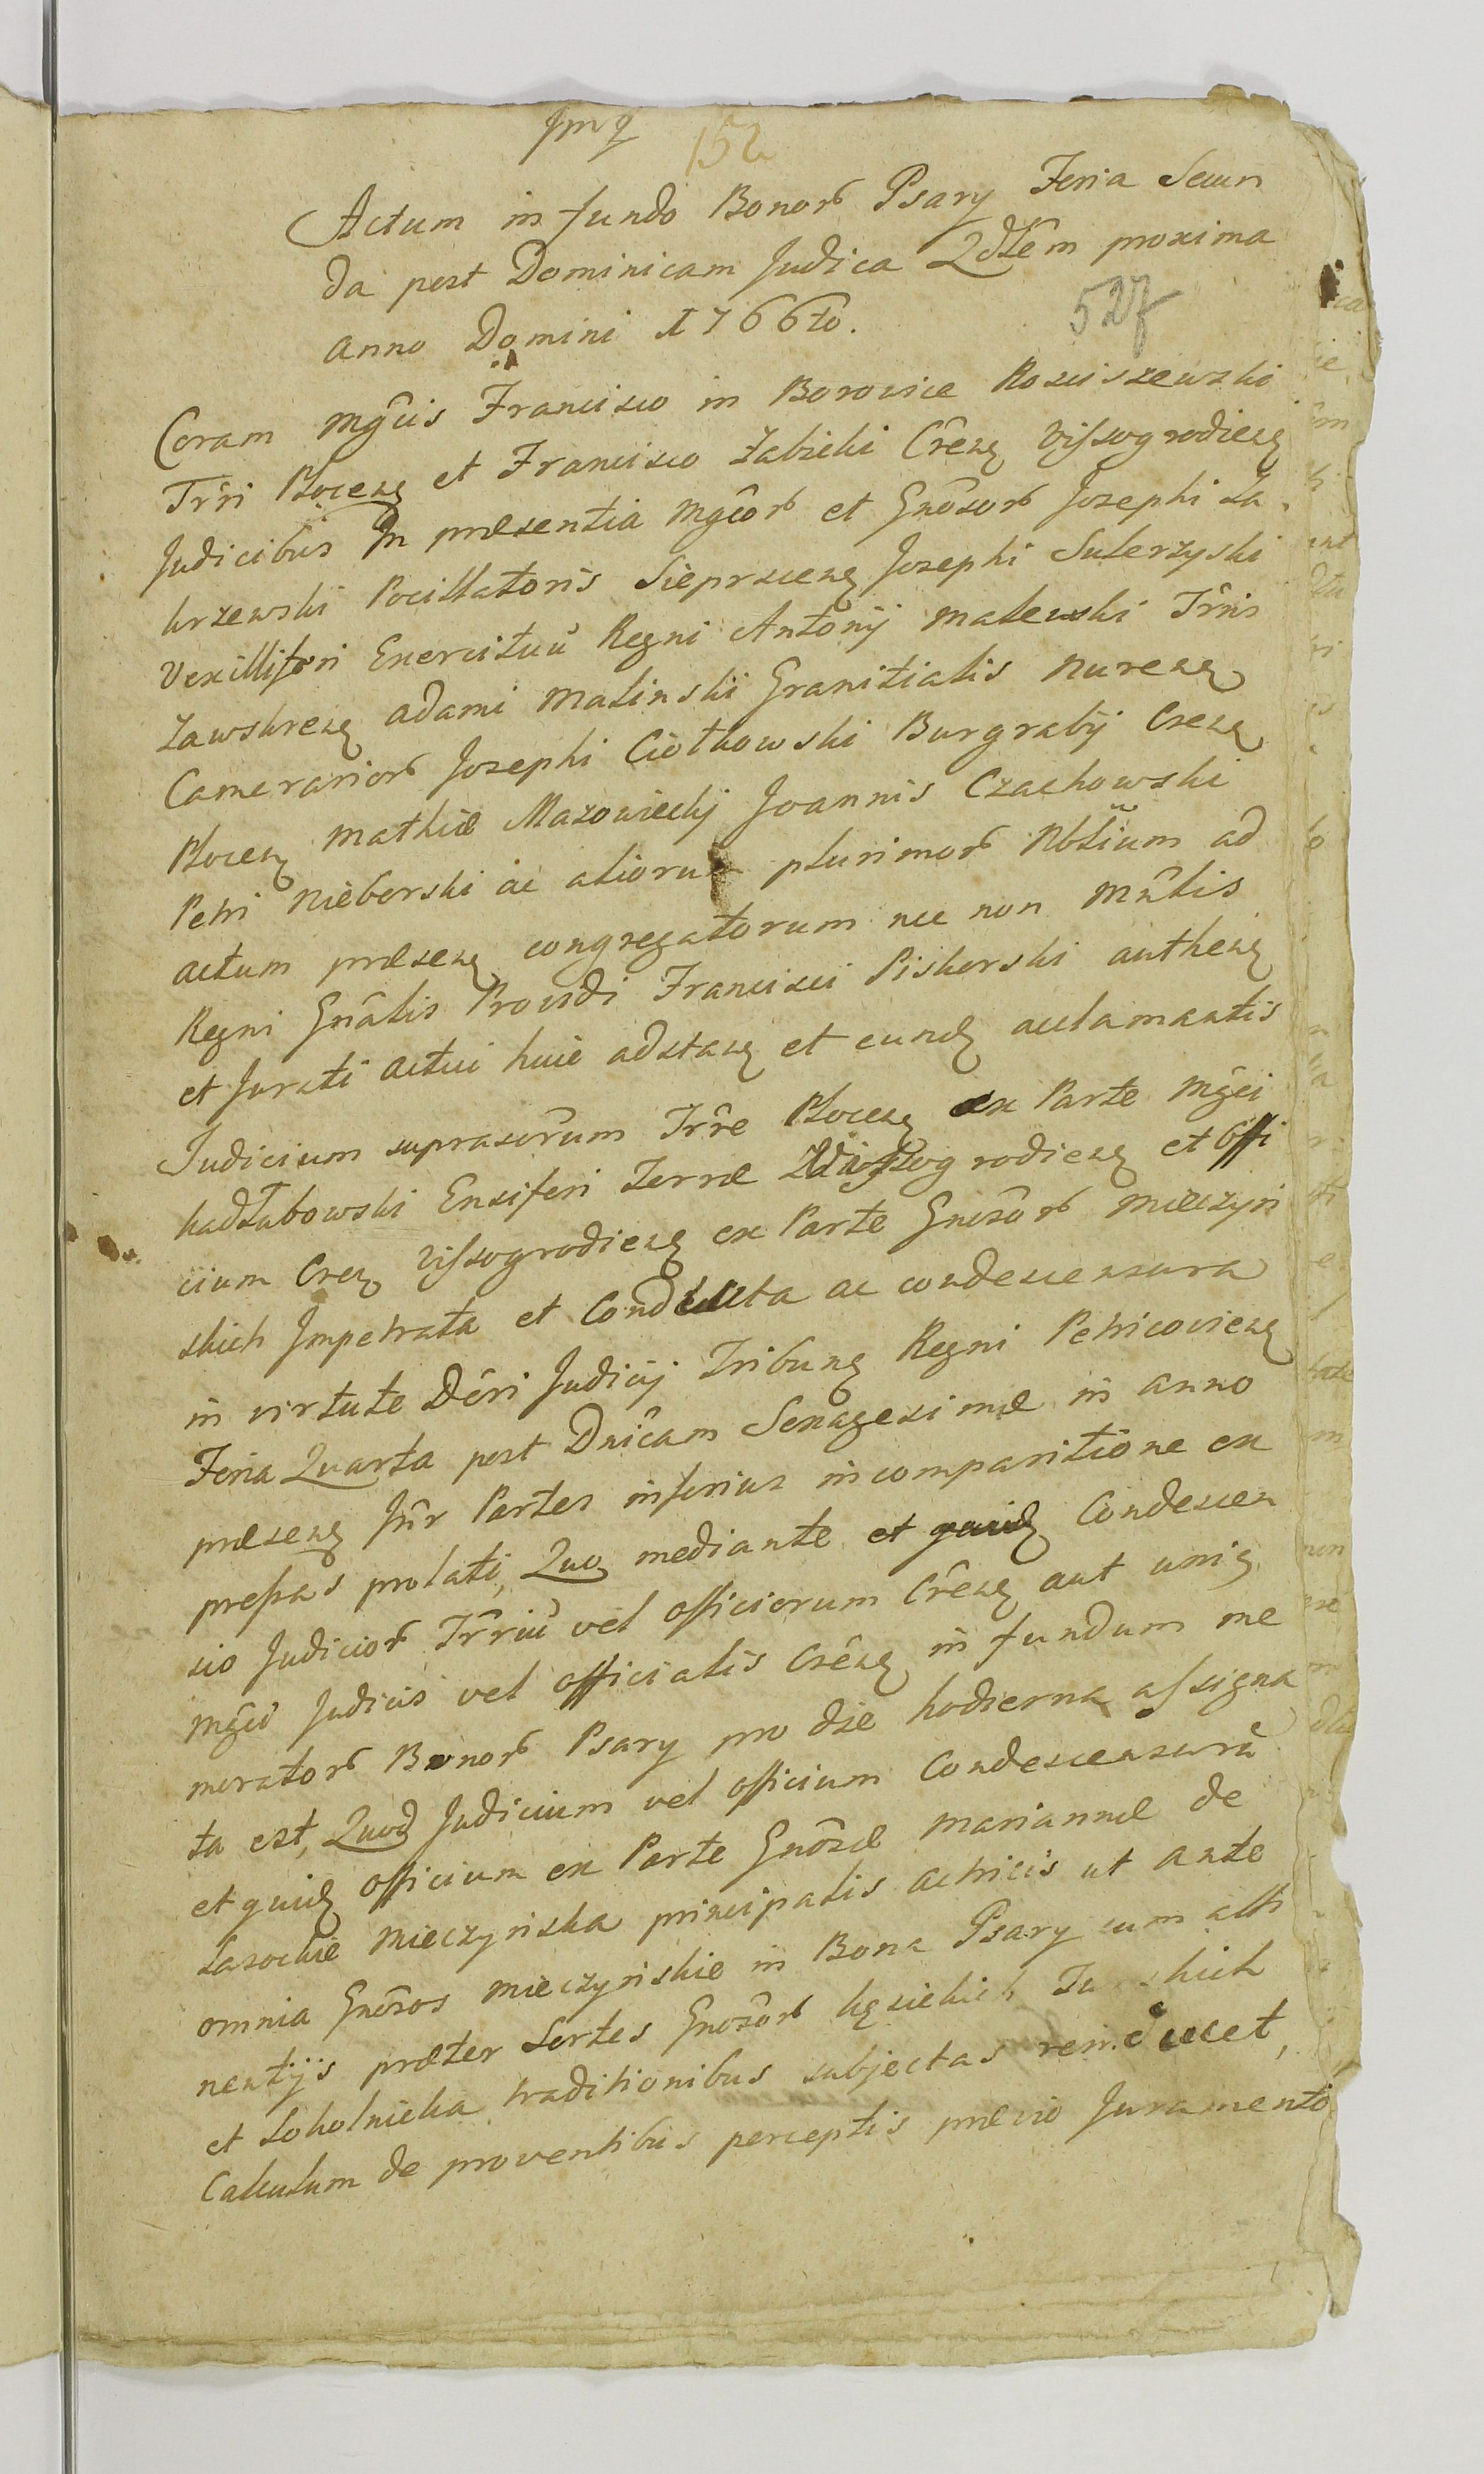 152
Actum in fundo Bonorb Psary Feria Secun
da post Dominicam Judica Qdtêm proxima
anno Domini 1766to.
527
Coram Mgĉis Francisco in Borowice Rosciszewski
Trŕi Plocens et Francisco Zabicki Crêns Vissogrodiens
Judicibus In præsentia Mgĉorb et Gnôsorb Josephi Za
krzewski Pocillatoris Sieprscens Josephi Suterzyski
Vexilliferi Exercituû Regni Antonij Malewski Trr̂is
Zawskrens Adami Malinskii Granitialis Nurens
Camerariorb Josephi Ciołkowski Burgrabij Crens
Plocens Mathiæ Mazowiecky Joannis Czachowski
Petri Nieborski ac aliorum plurimorb Nbliûm ad
actum præsens congregatorum nec non Mnlis
Regni Gnâlis Providi Francisci Piskorski authens
et Jurati actui huic adstans et eund acclamantis
Judicium suprascr̂um Trr̂e Plocens ex Parte Mgĉi
Kadłubowski Ensiferi Terræ Wissogrodiens et Offi
cium Crens Vissogrodiens ex Parte Gnosôrb Mieczyn
skich Impetrata et Conducta ac condescensura
in virtute Dĉri Judicij Tribuns Regni Petricoviens
Feria Quarta post Dnicâm Sexagesimæ in anno
præsens Intr Partes inferius in comparitione ex
pressas prolati, Quo mediante et quid Condescen
sio Judiciorb Trr̂riû vel officiorum Crêns aut unis
Mgĉi Judicis vel officialis Crêns in fundum me
moratorb Bonorb Psary pro die hodierna assigna
ta est, Quod Judicium vel officium Condescensurû
et quid officium ex Parte Gnôsæ Mariannæ de
Lasockie Mieczynska principalis actricis ut ante
omnia Gnôsos Mieczynskie in Bona Psary cum atti
nentijs præter Sortes Gnosôrb
et Sokolnicka traditionibus subjectas
Calculum de proventibus perceptis prævio Juramento